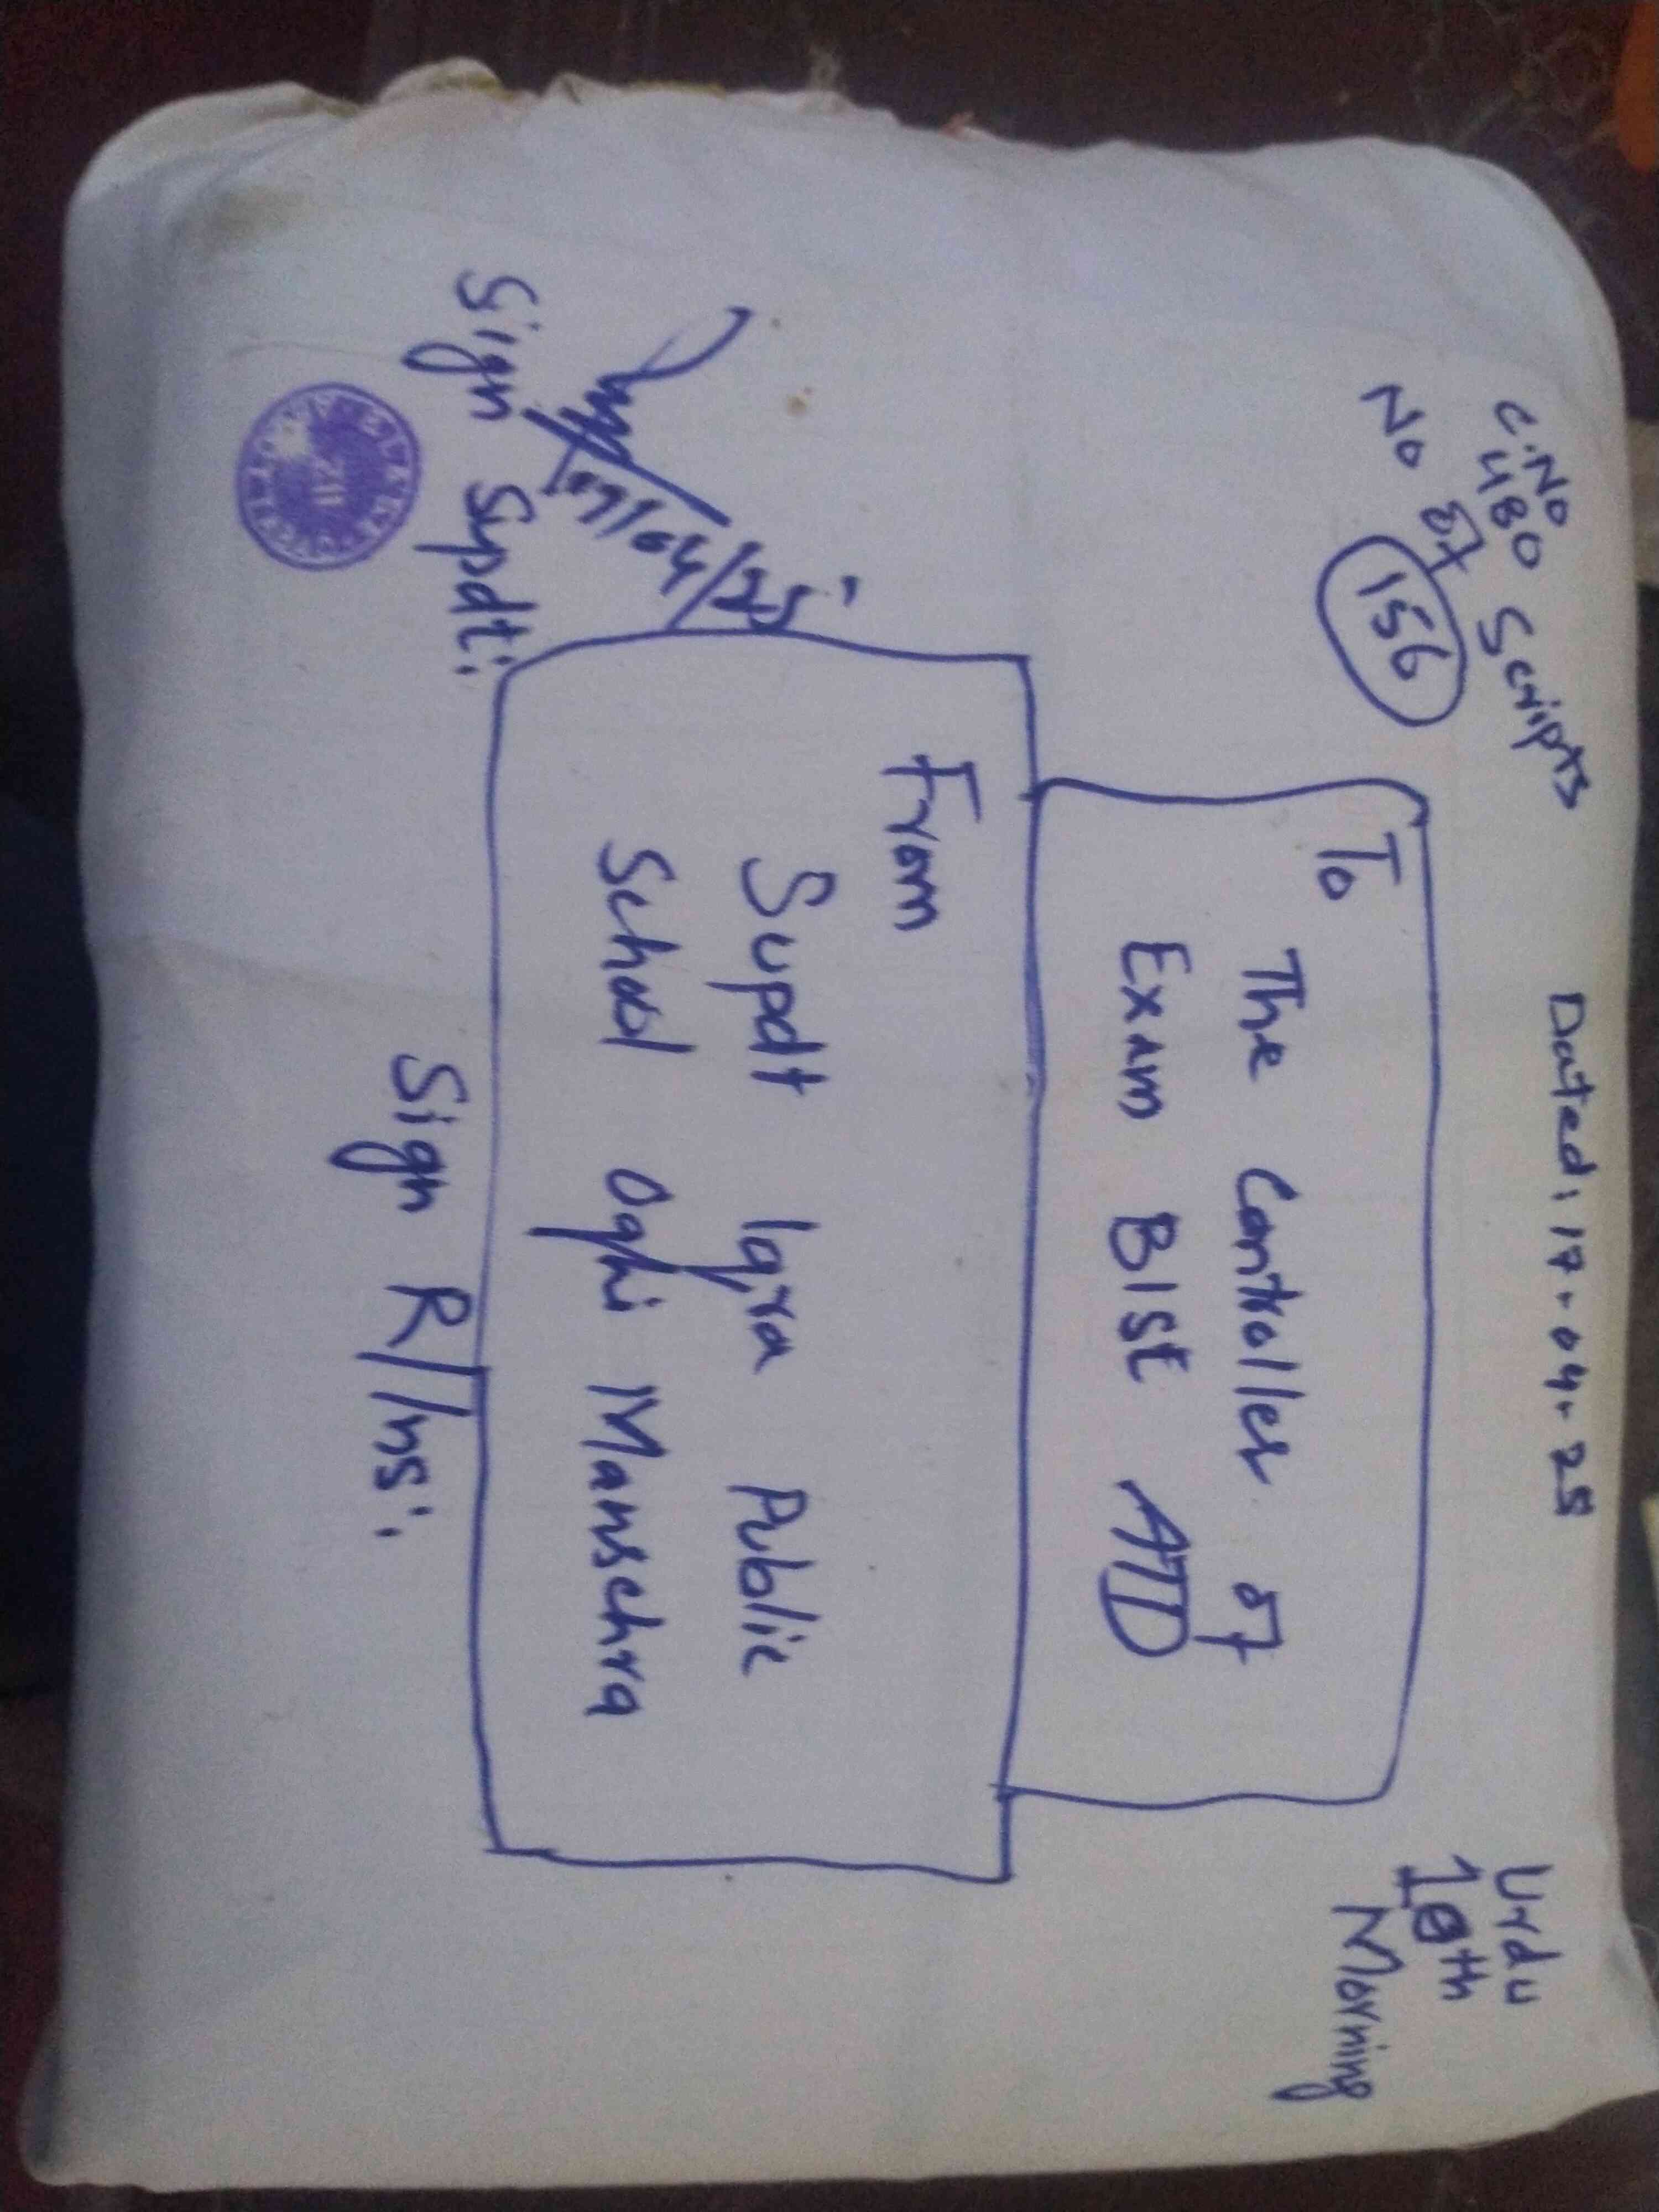 C.No
480
No of Scripts
156
Dated, 17-04-25
Urdu
10th
Morning
To
The Controller of
Exam BISE ATD
From
Supdt Iqra Public
School Oghi Mansehra
17/04/25
Sign Supdt:
Sign R/Ins: